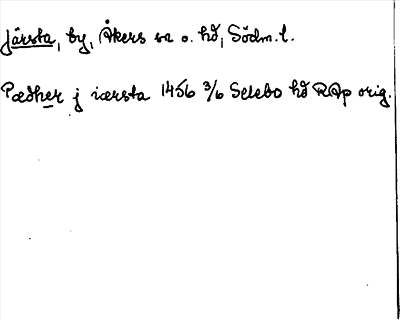 Järsta, by, Åkers sn o. hd, Södm. l.
Pædher j iærsta 1456 3/6 Selebo hd RAp orig.